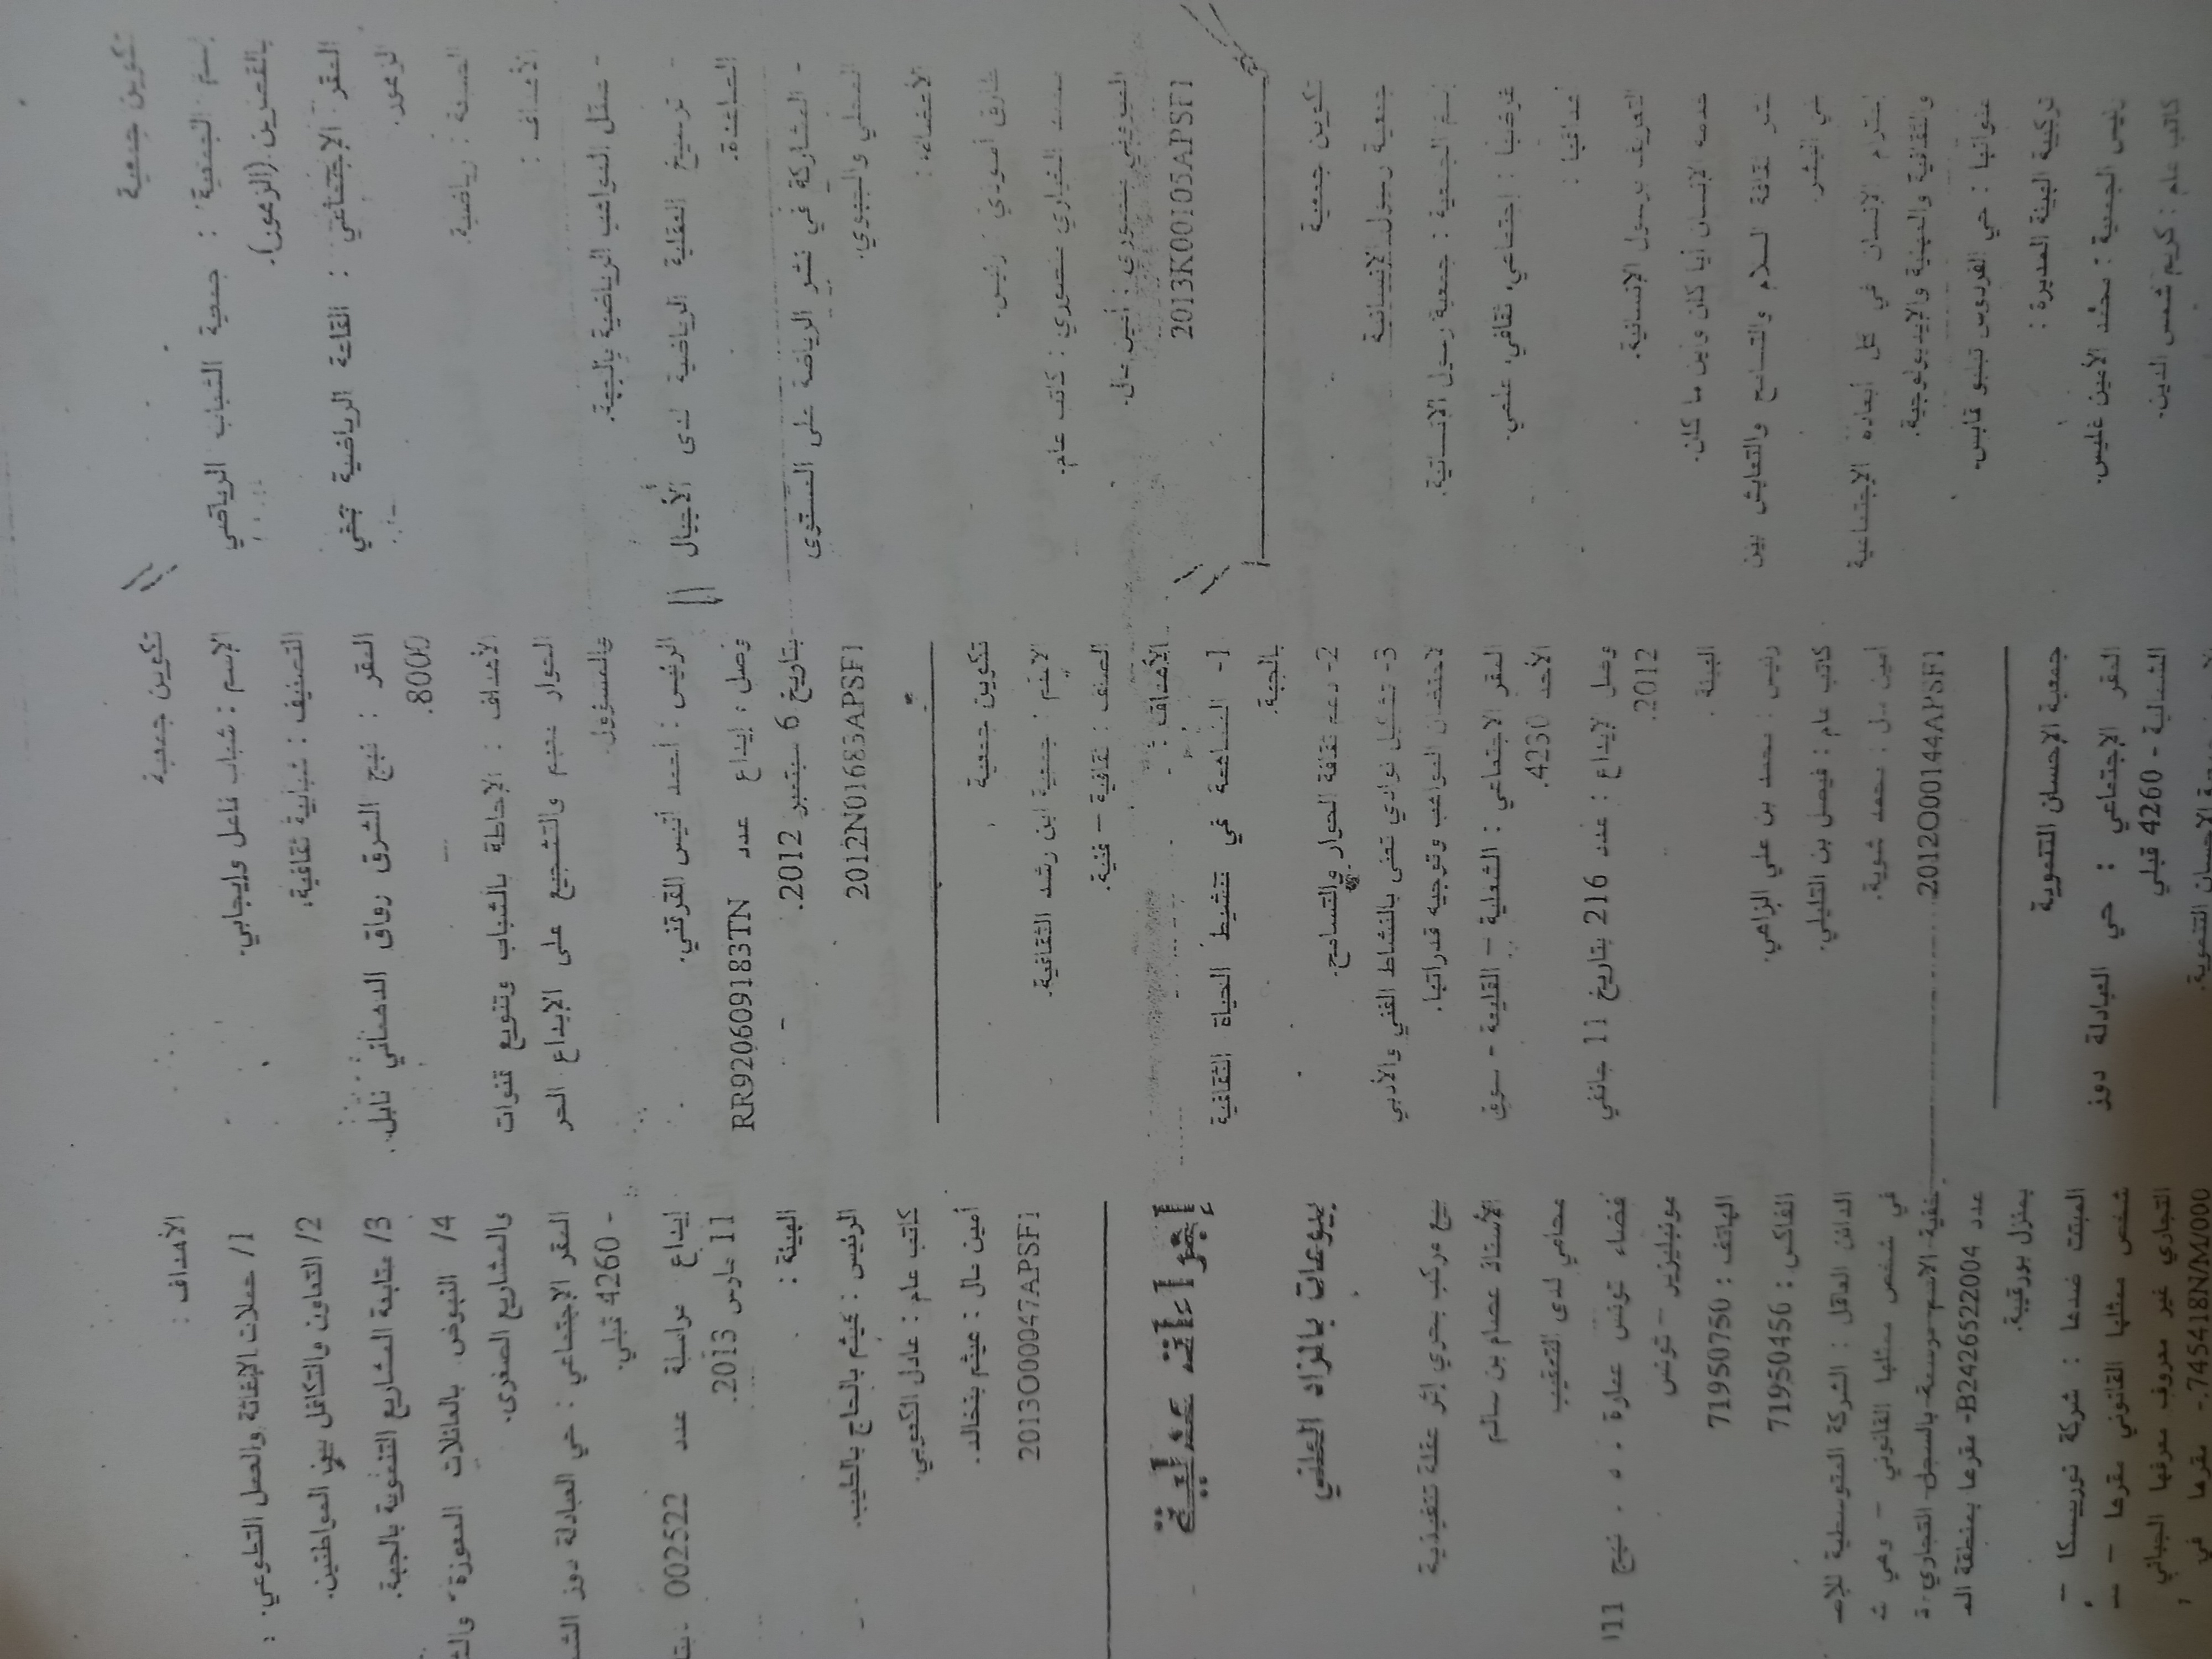 تكوين جمعية
إسم الجمعية : جمعية الشباب الرياضي
بالقصرين (الزهور).
المقر الإجتماعي : القاعة الرياضية بحي
الزهور.
الصبغة : رياضية.
الأهداف :
- صقل المواهب الرياضية بالجهة.
- ترسيخ العقلية الرياضية لدى الأجيال
الصاعدة.
- المشاركة في نشر الرياضة على المستوى
المحلي والجهوي.
الأعضاء :
رئيس.
منصوري : كاتب عام.
منصوري : أمين مال.
2013K00105APSF1
تكوين جمعية
جمعية رسول الإنسانية
إسم الجمعية : جمعية رسول الإنسانية.
غرضها : إجتماعي، ثقافي، علمي.
أهدافها :
التعريف برسول الإنسانية.
خدمة الإنسان أيا كان وأين ما كان.
نشر ثقافة السلام والتسامح والتعايش بين
بني البشر.
إحترام الإنسان في كل أبعاده الإجتماعية
والثقافية والدينية والإيديولوجية.
عنوانها : حي الفردوس تبلبو قابس.
تركيبة الهيئة المديرة :
رئيس الجمعية : محمد الأمين غليس.
كاتب عام : كريم شمس الدين.
تكوين جمعية
الإسم : شباب فاعل وإيجابي.
التصنيف : شبابية ثقافية.
المقر : نهج الشرق زقاق الدهماني نابل
8000.
الأهداف : الإحاطة بالشباب وتنويع قنوات
الحوار معهم والتشجيع على الإبداع الحر
والمسؤول.
الرئيس : أحمد أنيس القرقني.
وصل إيداع عدد RR920609183TN
بتاريخ 6 سبتمبر 2012.
2012N01683APSF1
تكوين جمعية
الإسم : جمعية ابن رشد الثقافية.
الصنف : ثقافية – فنية.
الأهداف :
1- المساهمة في تنشيط الحياة الثقافية
بالجهة.
2- دعم ثقافة الحوار والتسامح.
3- تشكيل نوادي تعنى بالنشاط الفني والأدبي
لاحتضان المواهب وتوجيه قدراتها.
المقر الاجتماعي : الشعلية – القليعة - سوق
الأحد 4230.
وصل الإيداع : عدد 216 بتاريخ 11 جانفي
2012.
الهيئة :
رئيس : محمد بن علي الزاهي.
كاتب عام : فيصل بن التليلي.
أمين مال : محمد شوية.
2012O00144APSF1
جمعية الإحسان التنموية
المقر الإجتماعي : حي العبادلة دوز
الشمالية - 4260 قبلي
الإحسان التنموية.
الأهداف :
1/ حملات الإغاثة والعمل التطوعي.
2/ التعاون والتكافل بين المواطنين.
3/ متابعة المشاريع التنموية بالجهة.
4/ النهوض بالعائلات المعوزة
والمشاريع الصغرى.
المقر الإجتماعي : حي العبادلة دوز
- 4260 قبلي.
إيداع مراسلة عدد 002522
11 مارس 2013.
الهيئة :
الرئيس : ميثم بالحاج بالطيب.
كاتب عام : عادل الكعوبي.
أمين مال : ميثم بنخالد.
2013O00047APSF1
إجراءات عدلية
بيوعات بالمزاد العلني
بيع مركب بحري إثر عقلة تنفيذية
الأستاذ عصام بن سالم
محامي لدى التعقيب
فضاء تونس عمارة نهج
مونبليزير – تونس
الهاتف : 71950750
الفاكس : 71950456
الدائن العاقل : الشركة المتوسطية
في شخص ممثلها القانوني – وهي
مرسمة بالسجل التجاري
عدد B2426522004- مقرها بمنطقة
بمنزل بورقيبة.
شخص ممثلها القانوني مقرها
التجاري غير معروف معرفها الجبائي
745418N/M/000- مقرها في